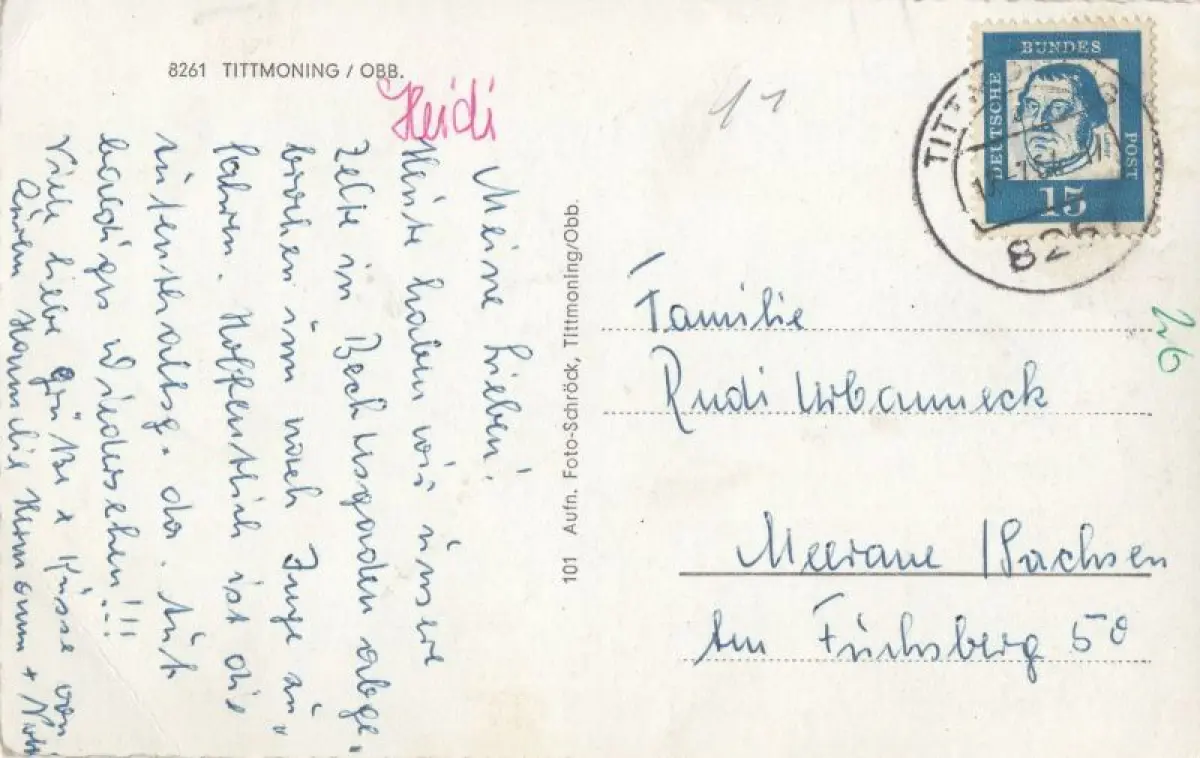 8261 TITTMONING / OBB.
Heidi
Meine Lieben!
Heute haben wir unsere
Zelte in Berchtesgaden abge-
brochen um nach Inge zu
fahren. Hoffentlich ist die
Aufenthaltsg. da. Auf
baldiges Wiedersehen!!!
Viele liebe Grüße + Küsse von
Eurem Hermann +
101 Aufn. Foto-Schröck, Tittmoning/Obb.
11
DEUTSCHE
BUNDES
POST
15
TITTMONING
8261
Familie
Rudi Urbanneck
Meerane / Sachsen
Am Fuchsberg 50
26